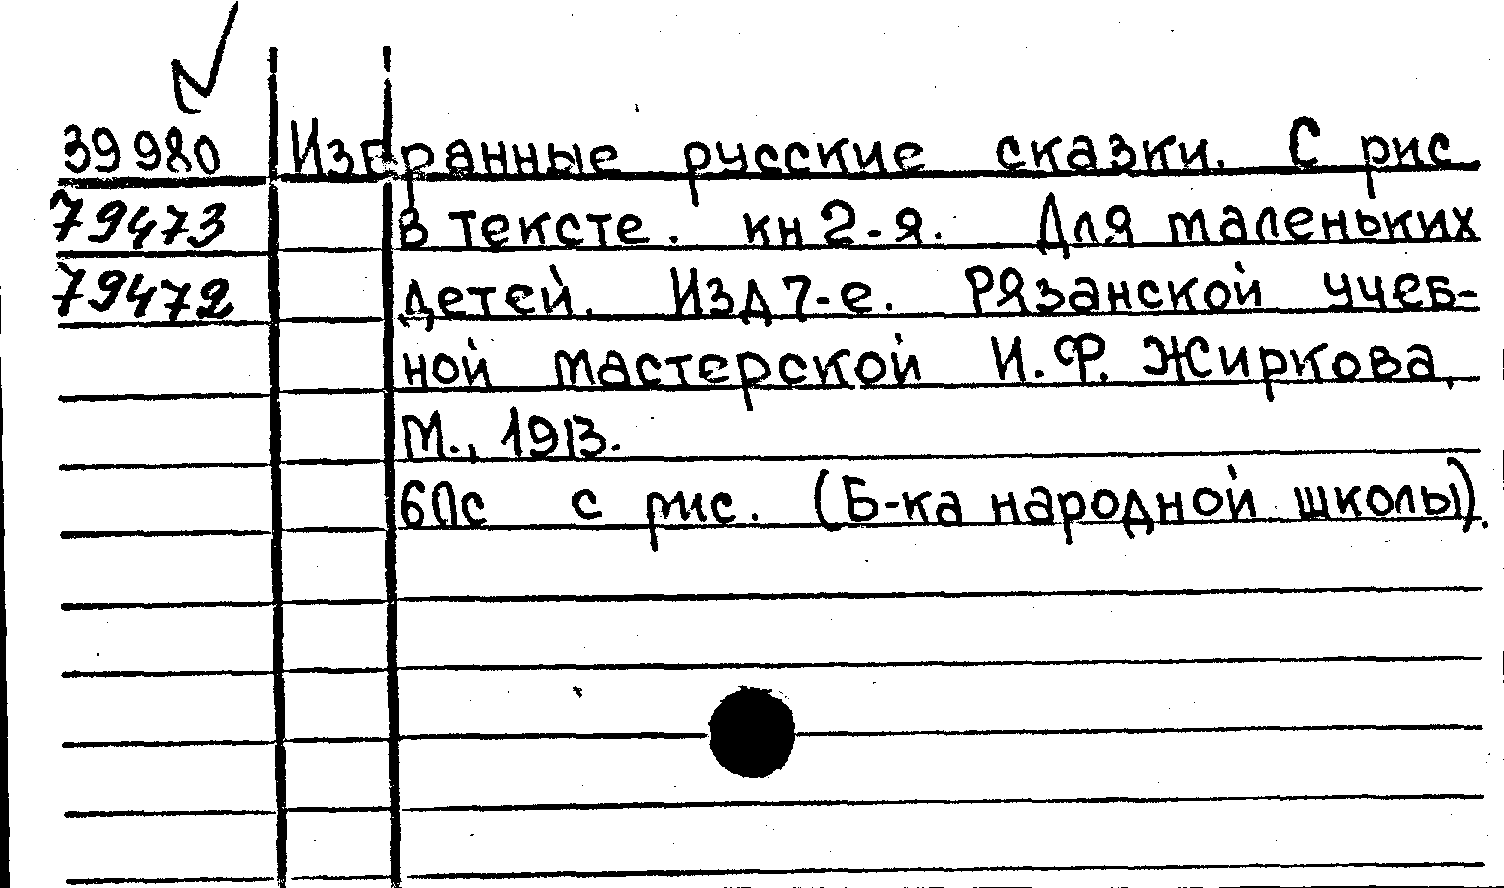 39980 Избранные русские сказки. С рис
79473 в тексте. кн 2-я. Для маленьких
79472 детей. Изд 7-е. Рязанской учеб-
ной мастерской И.Ф. Жиркова,
М., 1913.
60с с рис. (Б-ка народной школы).